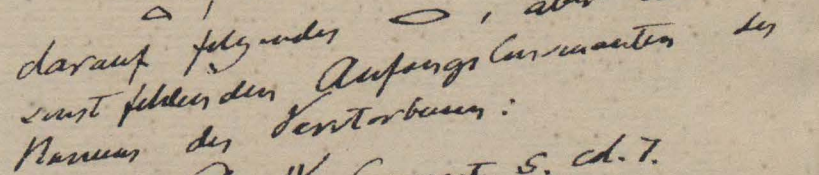 darauf folgendes , aber
sonst fehlenden Anfangs Consonanten des
Namens des Verstorbenen:
S. cd. 7.